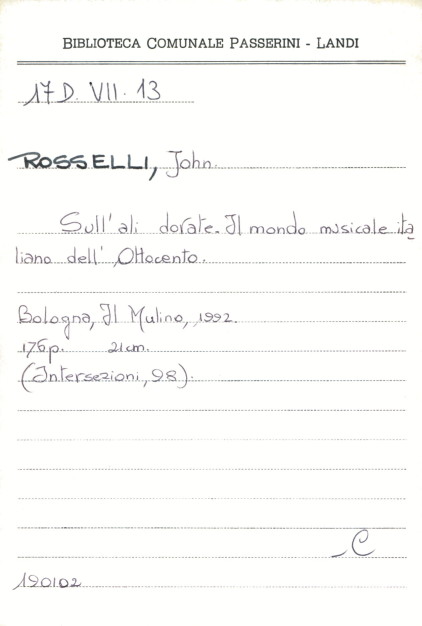 BIBLIOTECA COMUNALE PASSERINI - LANDI
17 D. VII. 13
ROSSELLI, John.
Sull'ali dorate. Il mondo musicale ita
liano dell'Ottocento.
Bologna, Il Mulino, 1992.
176p. 21cm.
(Intersezioni, 98).
C
190102